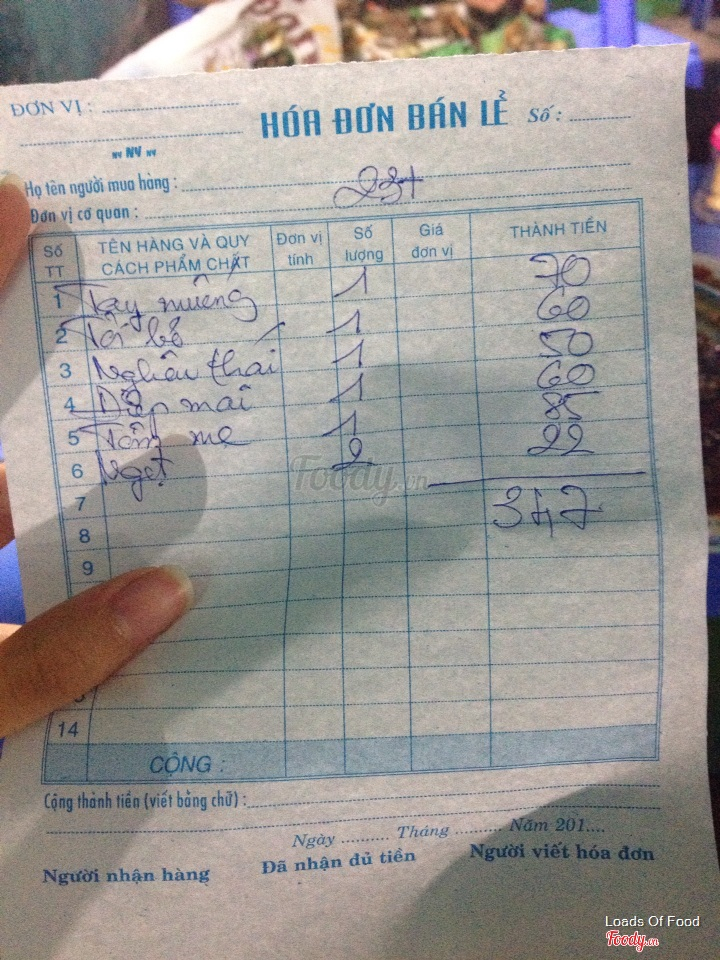 ĐƠN VỊ : ....................
HÓA ĐƠN BÁN LẺ Số : ..........
Họ tên người mua hàng : ....................
Đơn vị cơ quan : ....................
Số TT TÊN HÀNG VÀ QUY CÁCH PHẨM CHẤT Đơn vị tính Số lượng Giá đơn vị THÀNH TIỀN
1 Tay muỗng 1 70
2 Tỏi bơ 1 60
3 Nghêu thái 1 50
4 Điệp mai 1 60
5 Tôm mẹ 1 85
6 Ngọt 2 22
7 347
8
9
14
CỘNG :
Cộng thành tiền (viết bằng chữ) : ....................
Ngày .......... Tháng .......... Năm 201....
Người nhận hàng Đã nhận đủ tiền Người viết hóa đơn
Foody.vn
Loads Of Food
Foody.vn